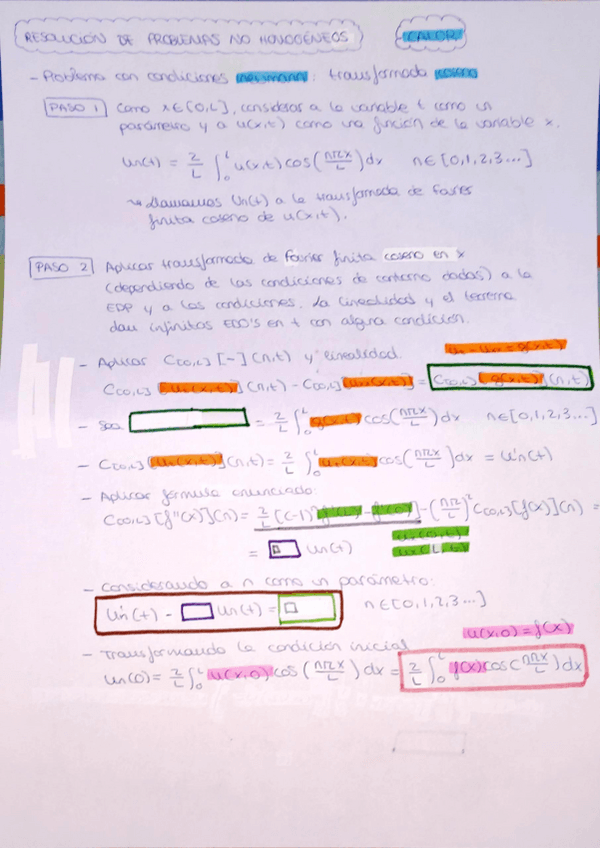 RESOLUCIÓN DE PROBLEMAS NO HOMOGÉNEOS
CALOR
- Problema con condiciones neumann: transformada coseno
PASO 1 Como x∈[0,L], considerar a la variable t como un
parámetro y a u(x,t) como una función de la variable x.
Un(t) = 2/L ∫₀ᴸ u(x,t) cos(nπx/L) dx n∈[0,1,2,3...]
↳ Llamamos Un(t) a la transformada de Fourier
finita coseno de u(x,t).
PASO 2 Aplicar transformada de Fourier finita coseno en x
(dependiendo de las condiciones de contorno dadas) a la
EDP y a las condiciones. La linealidad y el teorema
dan infinitas EDO'S en t con alguna condición.
- Aplicar C[0,L][-](n,t) y linealidad.
ut - uxx = g(x,t)
C[0,L][ut(x,t)](n,t) - C[0,L][uxx(x,t)] = C[0,L][g(x,t)](n,t)
- Sea = 2/L ∫₀ᴸ g(x,t) cos(nπx/L) dx n∈[0,1,2,3...]
- C[0,L][ut(x,t)](n,t) = 2/L ∫₀ᴸ ut(x,t) cos(nπx/L) dx = U'n(t)
- Aplicar fórmula enunciado:
C[0,L][f''(x)](n) = 2/L [(-1)ⁿ f'(L) - f'(0)] - (nπ/L)² C[0,L][f(x)](n) =
= Un(t)
ux(0,t)
ux(L,t)
- Considerando a n como un parámetro:
U'n(t) - Un(t) = n∈[0,1,2,3...]
- Transformando la condición inicial
u(x,0) = f(x)
Un(0) = 2/L ∫₀ᴸ u(x,0) cos(nπx/L) dx = 2/L ∫₀ᴸ f(x) cos(nπx/L) dx